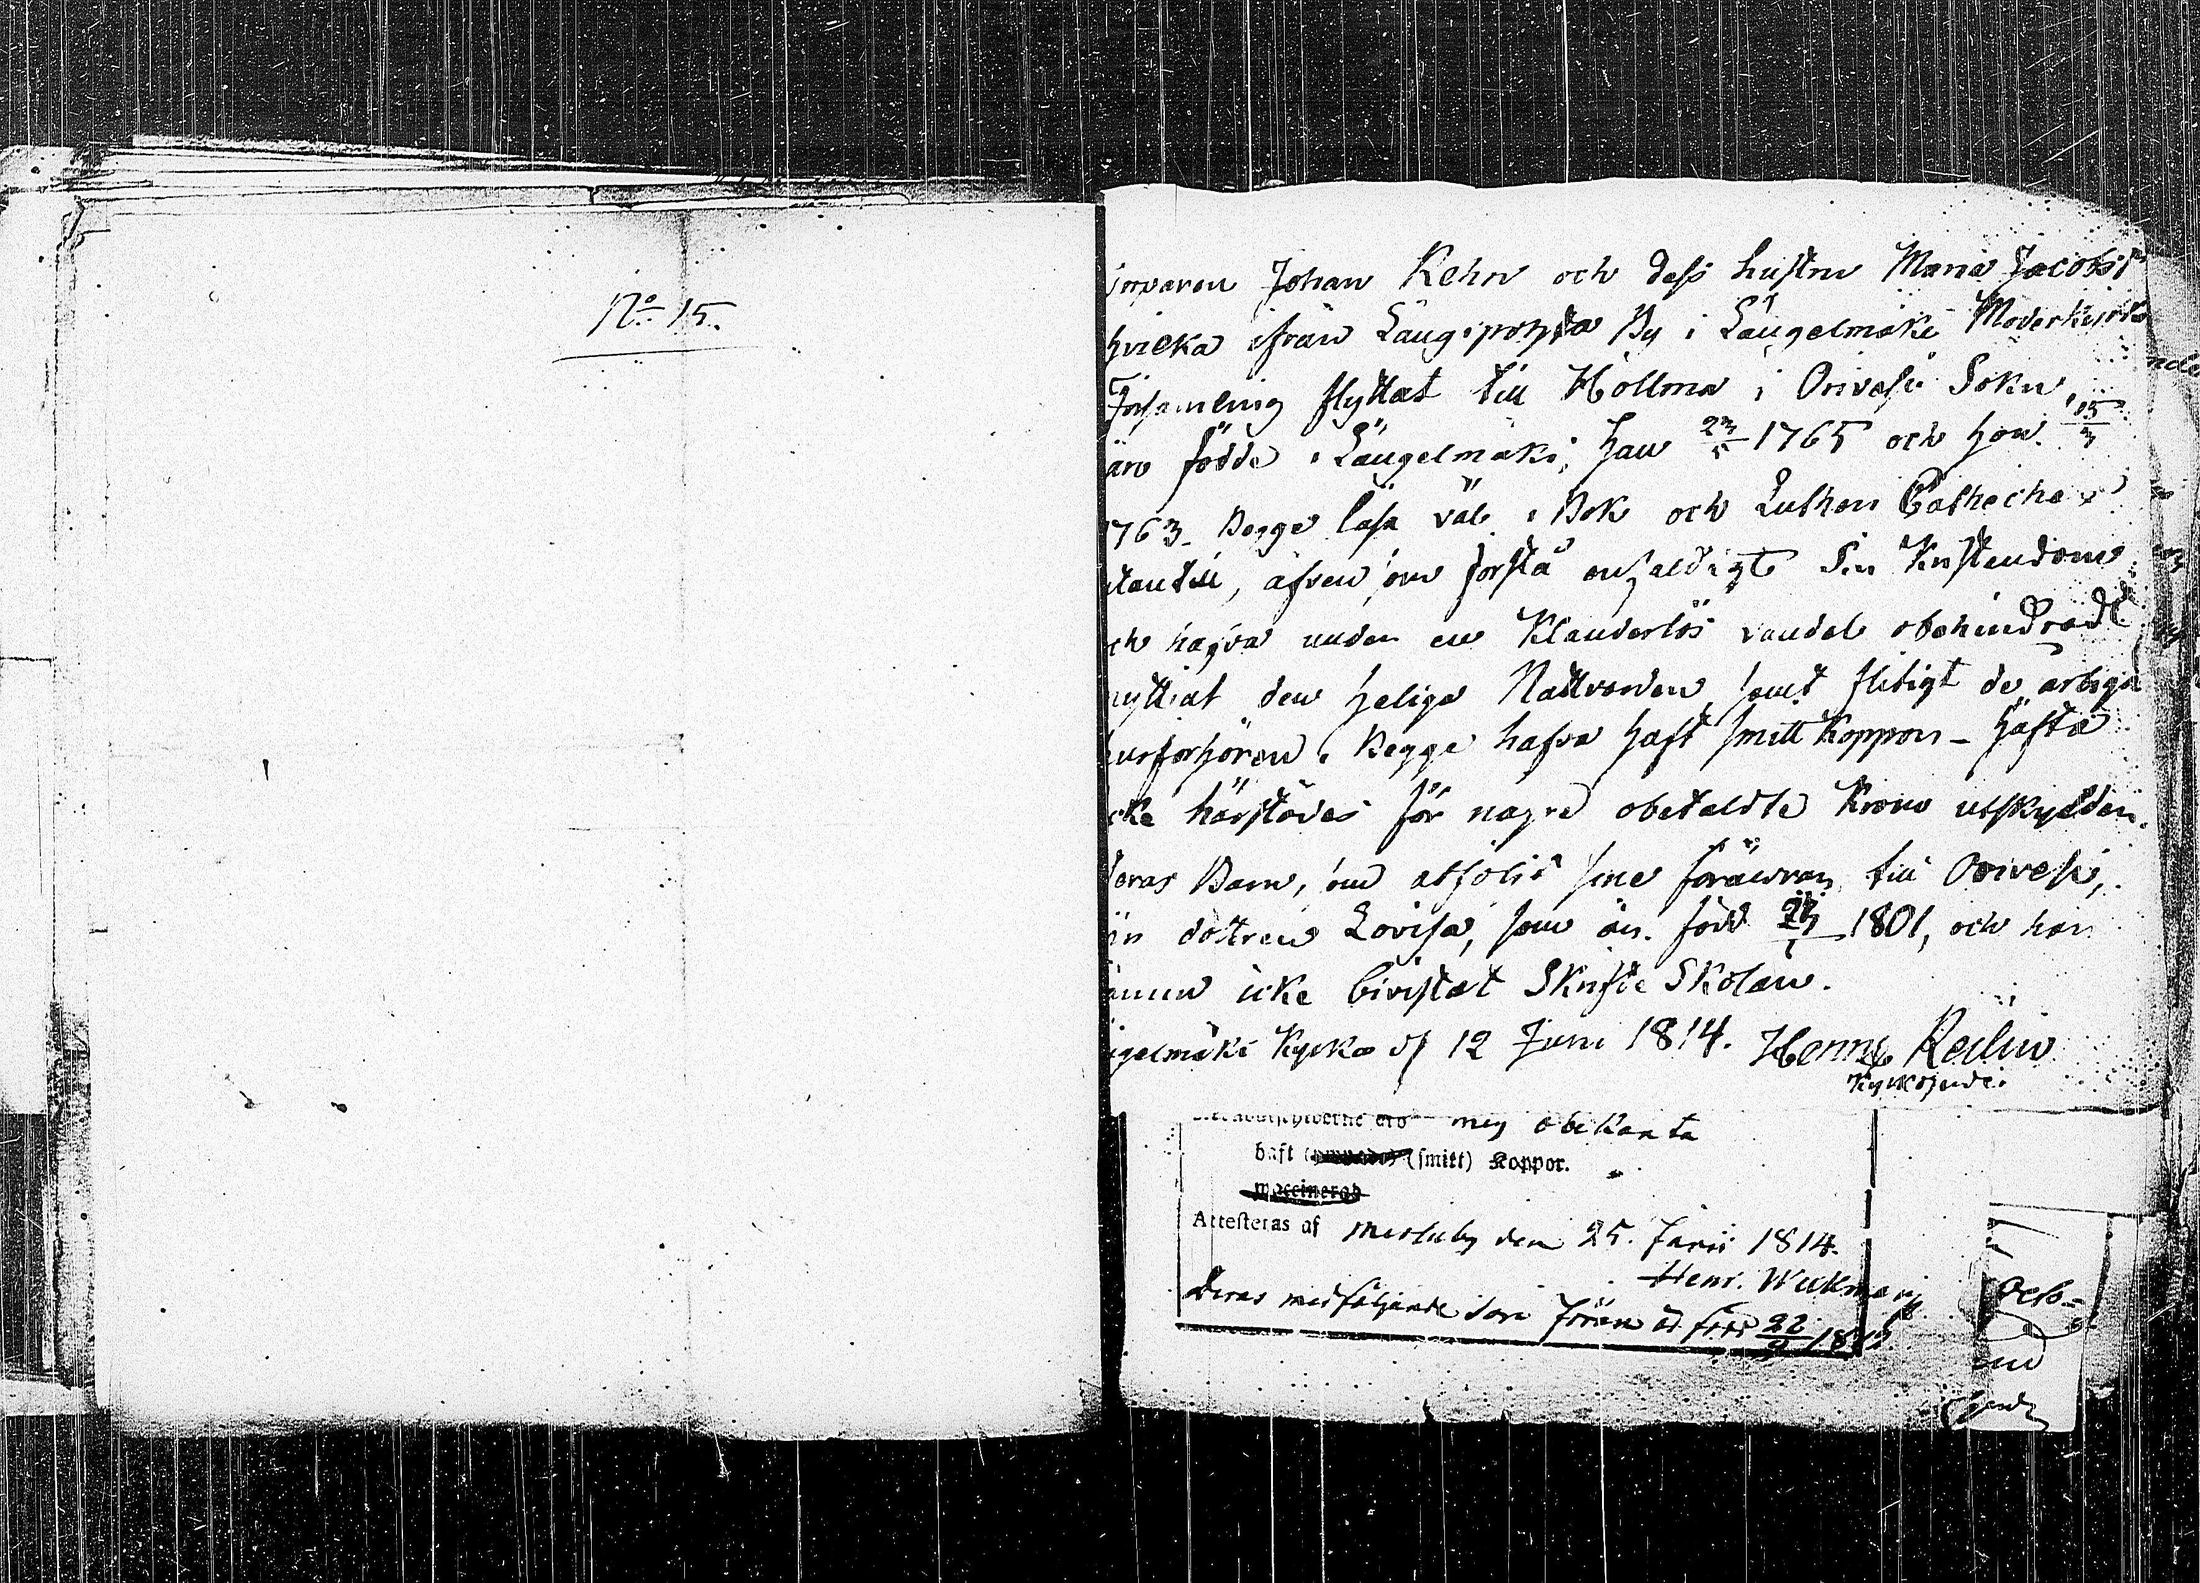 No 15.
Johan Rehn och dess hustru Maria Jacobsd
hvilka ifrån Längipohja By i Längelmäki Moderkyrko
Församling flyttat till Hollma i Orivesi Sokn,
äro födde i Längelmäki; han 23/5 1765 och hon 15/3
1763. Begge läsa väl i Bok och Lutheri Catheches
utantill, äfven som förstå enfaldigt Sin Kristendom
ch hafva under en Klanderlös vandel obehindradt
nyttjat den heliga Nattvarden samt flitigt de årliga
husförhören. Begge hafva haft smitt Koppor - häfta
cke härstädes för några obetaldte Krono utskylder.
deras Barn, som åtfölja sine föräldrar till Orivesi,
än dottren Lovisa, som är född 1801, och har
ännu icke bivistat Skrifte Skolan.
gelmäki Kyrka d 12 Juni 1814. Henric Relin
Kyrkoherde.
mig obekanta
haft (smitt) Koppor.
vaccinerad
Attesteras af Mestuby den 25. Junii 1814.
Henr. Wickman
Deras medföljande Son är född 22/9
och